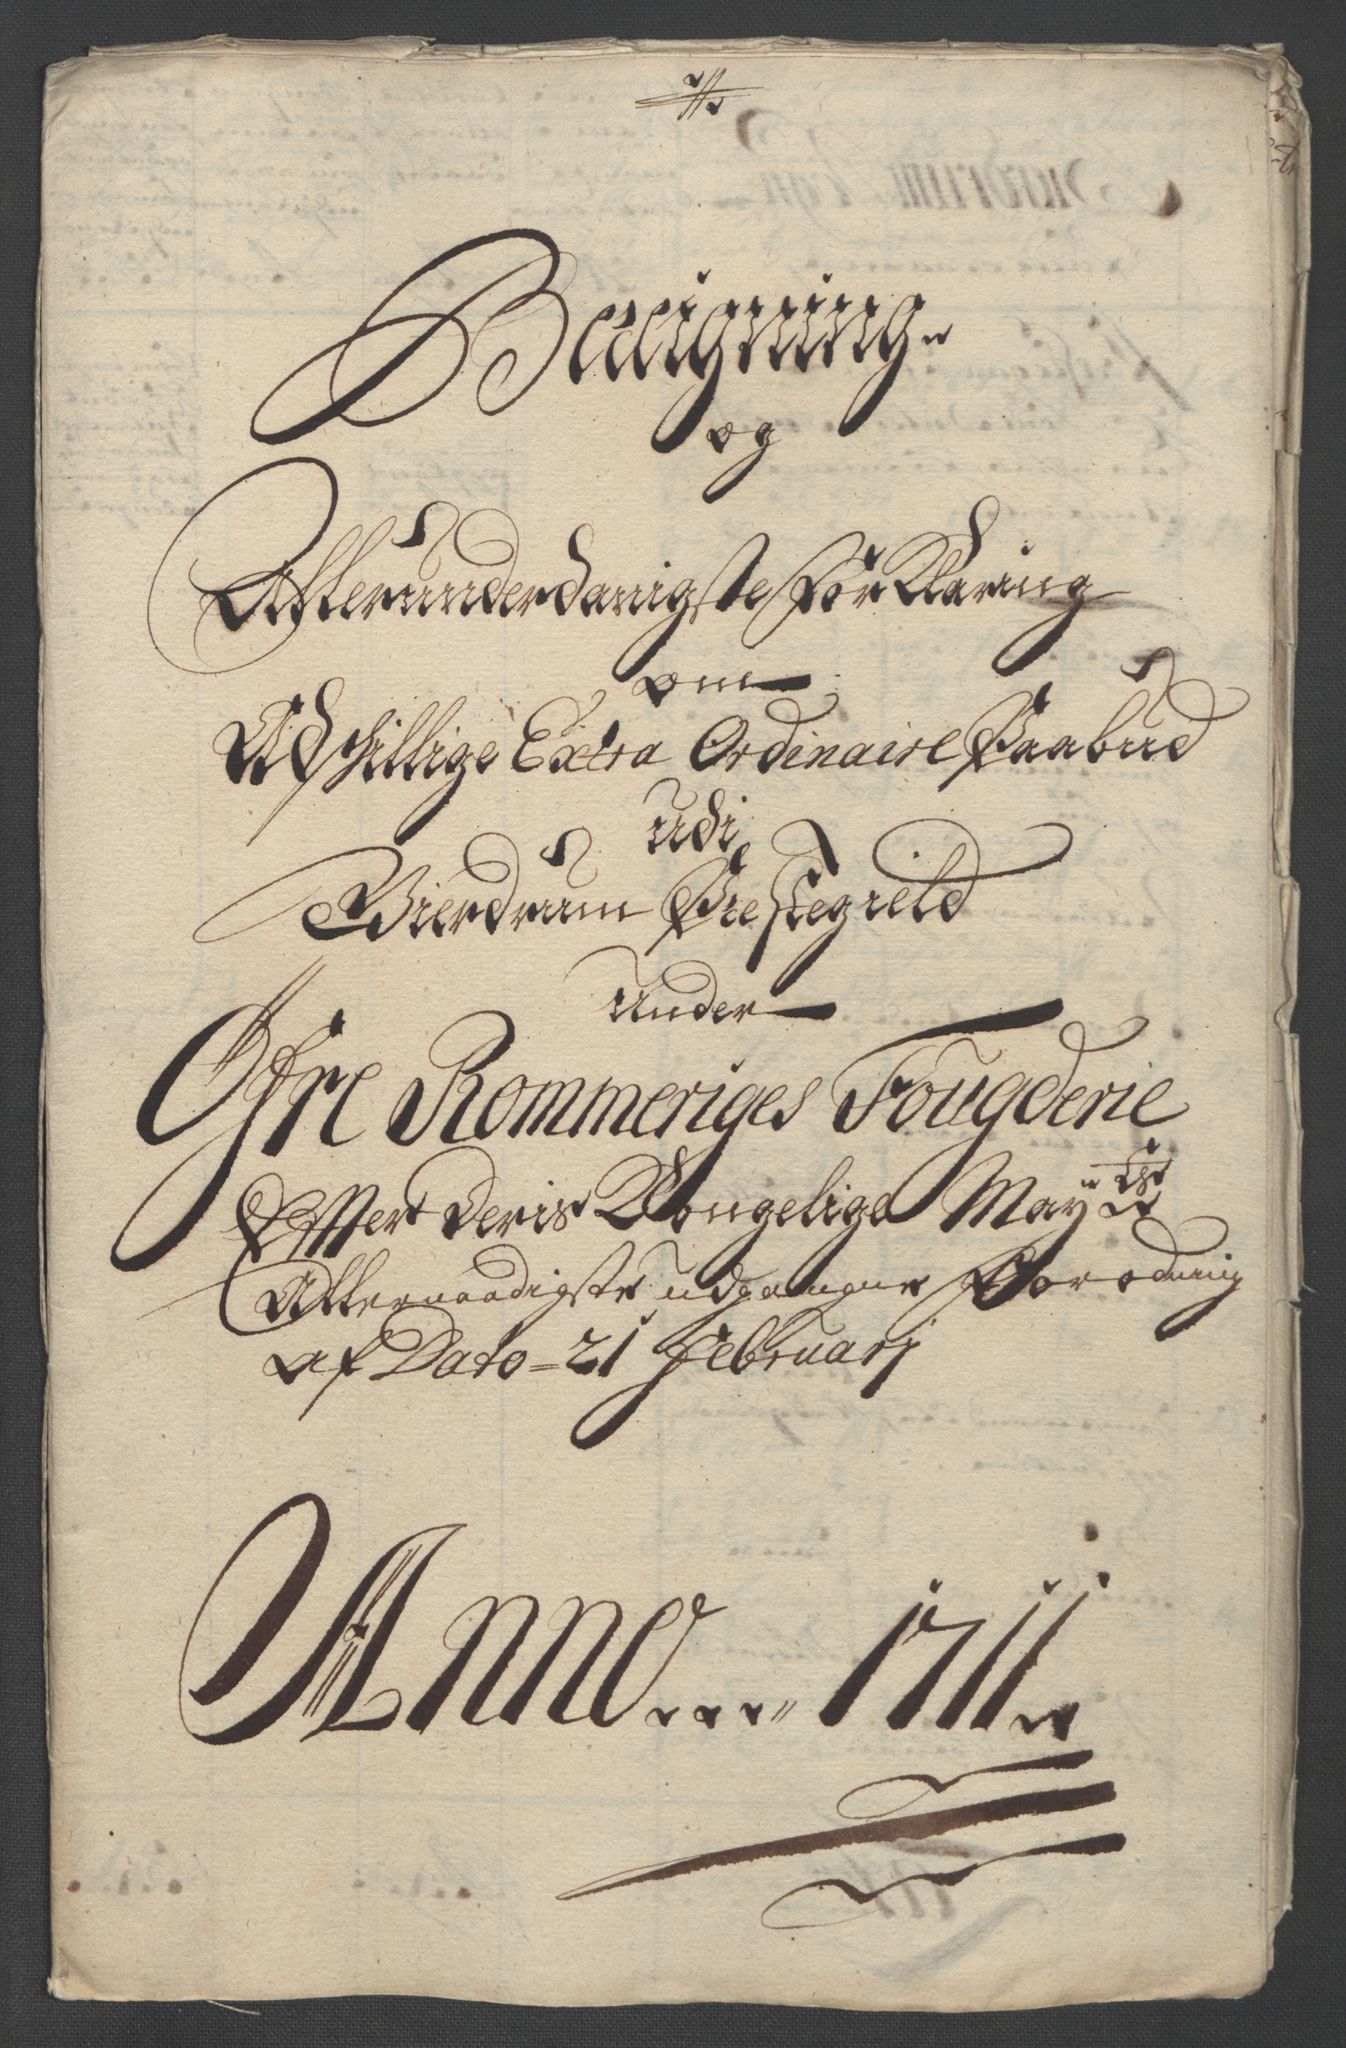 Beligning
og
Allerunderdanigste Forklaring
om
Adskillige Extra Ordinaire Paabud
udi
Bierdrum Prestegield
Under
Øfre Rommeriges Fougderie
Effter Deris Kongelige Mayts
Allernaadigste udgangne Forordning
af Dato 21 Februarj
Anno 1711